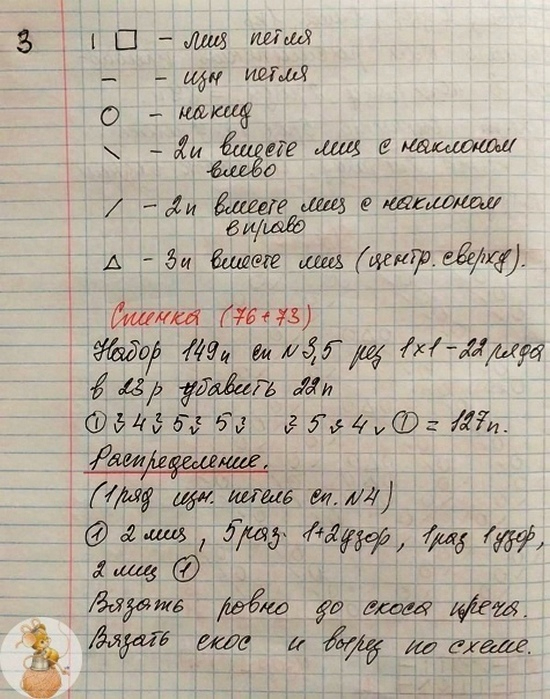 3
| □ - лиц петля
- - изн петля
О - накид
\ - 2п вместе лиц с наклоном
влево
/ - 2п вместе лиц с наклоном
вправо
△ - 3п вместе лиц (центр. сверху).
Спинка (76+73)
Набор 149п сп №3,5 рез 1х1-22 ряда
в 23р убавить 22п
① 4 5 5 5 4 ① = 127п.
Распределение.
(1 ряд изн. петель сп. №4)
① 2 лиц, 5 раз 1+2 узор, 1 раз 1 узор,
2 лиц ①
Вязать ровно до скоса плеча.
Вязать скос и вырез по схеме.